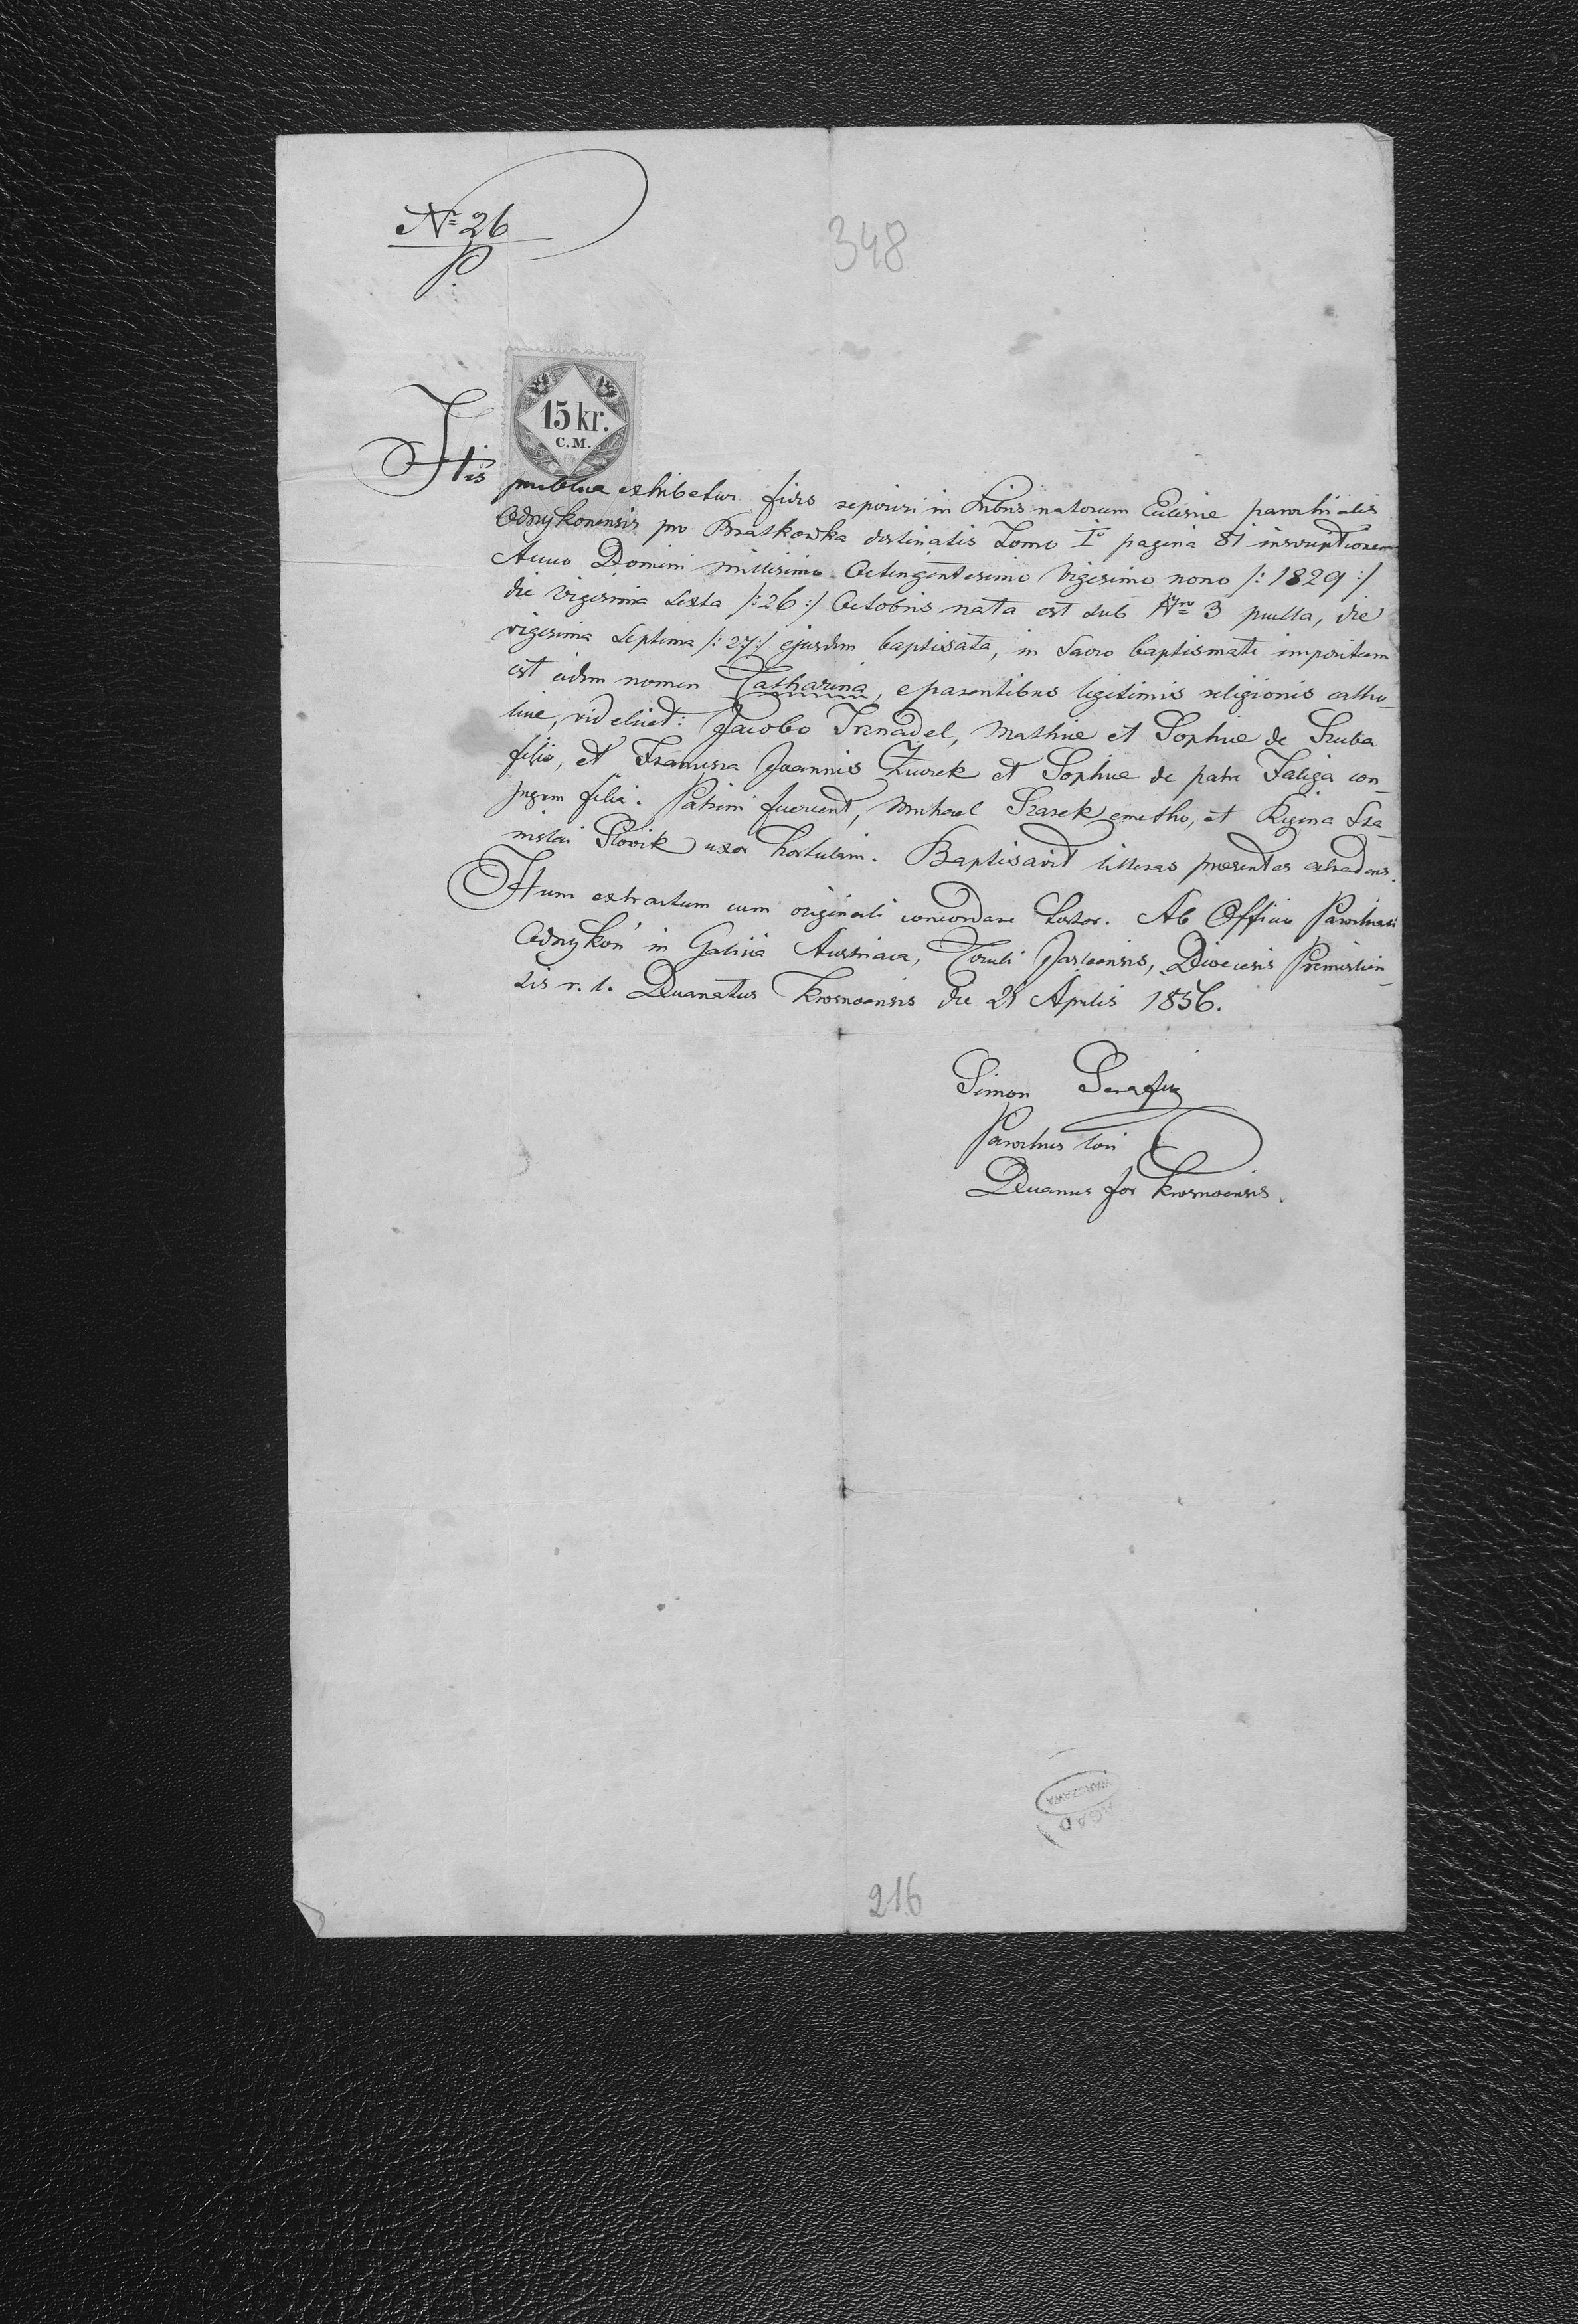 No 26
P.
348
15 kr.
C.M.
His publica exhibetur fides reperiri in Libris natorum Ecclesiae parochialis
Odrzykonensis pro Bratkowka destinatis Tomo I° pagina 81 inscriptionem
Anno Domini millesimo Octingentesimo vigesimo nono /: 1829 :/
die vigesima Sexta /: 26 :/ Octobris nata est sub Nro 3 puella, die
vigesima Septima /: 27 :/ ejusdem baptisata, in Sacro baptismate impositum
est eidem nomen Catharina, e parentibus legitimis religionis catho-
licae, videlicet: Jacobo Trenadel, Mathiae et Sophiae de Szuba
filio, et Francisca Joannis Żurek et Sophiae de patre Faliga con-
jugum filia. Patrini fuerunt, Michael Szarek cmetho, et Regina Sta-
nislai Słowik uxor hortulani. Baptisavit litteras presentes extradens.
Hum extractum cum originali concordare testor. Ab Officio Parochiali
Odrzykoń in Galicia Austriaca, Circuli Jasloensis, Dioecesis Premislien-
sis r. l. Decanatus Krosnoensis die 21 Aprilis 1856.
Simon Serafin
Parochus loci
Decanus for Krosnoensis.
AGAD
WARSZAWA
216